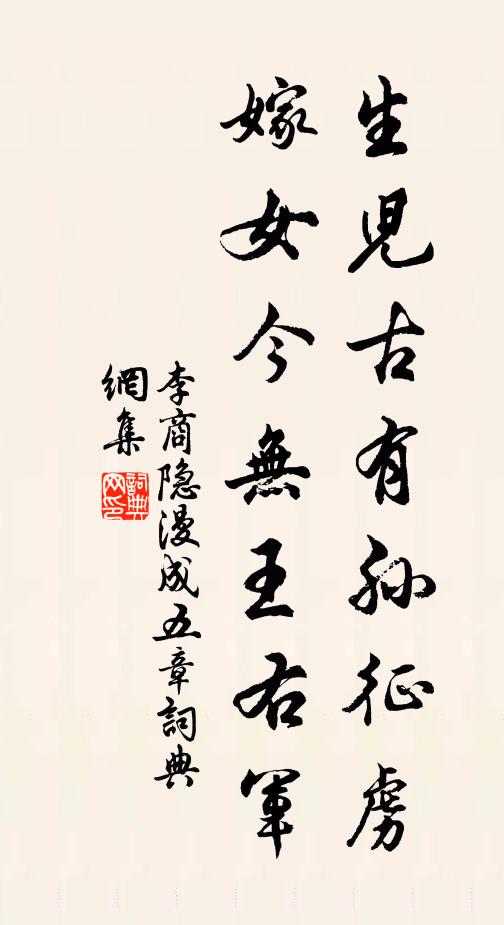 生児古有孫征虜
嫁女今無王右軍
李商隐漫成五章詞典
網集
詞典
网印